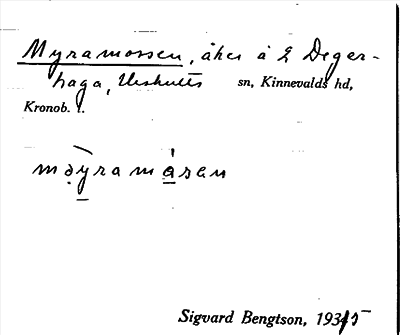 Myramossen, åker å L Deger-
haga, Urshults sn, Kinnevalds hd,
Kronob. l.
mə̀yramásen
Sigvard Bengtson, 1934/5